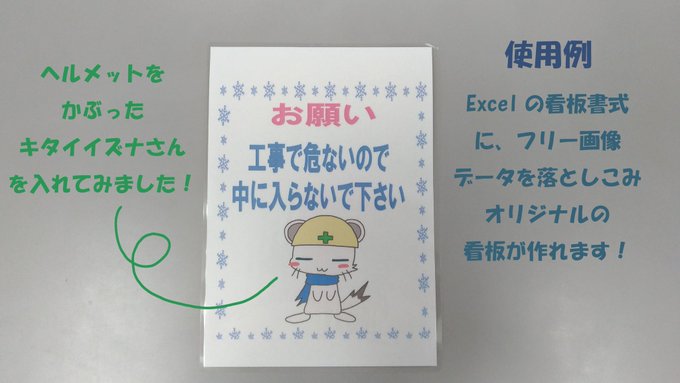 ヘルメットを
かぶった
キタイイズナさん
を入れてみました！
お願い
工事で危ないので
中に入らないで下さい
使用例
Excelの看板書式
に、フリー画像
データを落としこみ
オリジナルの
看板が作れます！